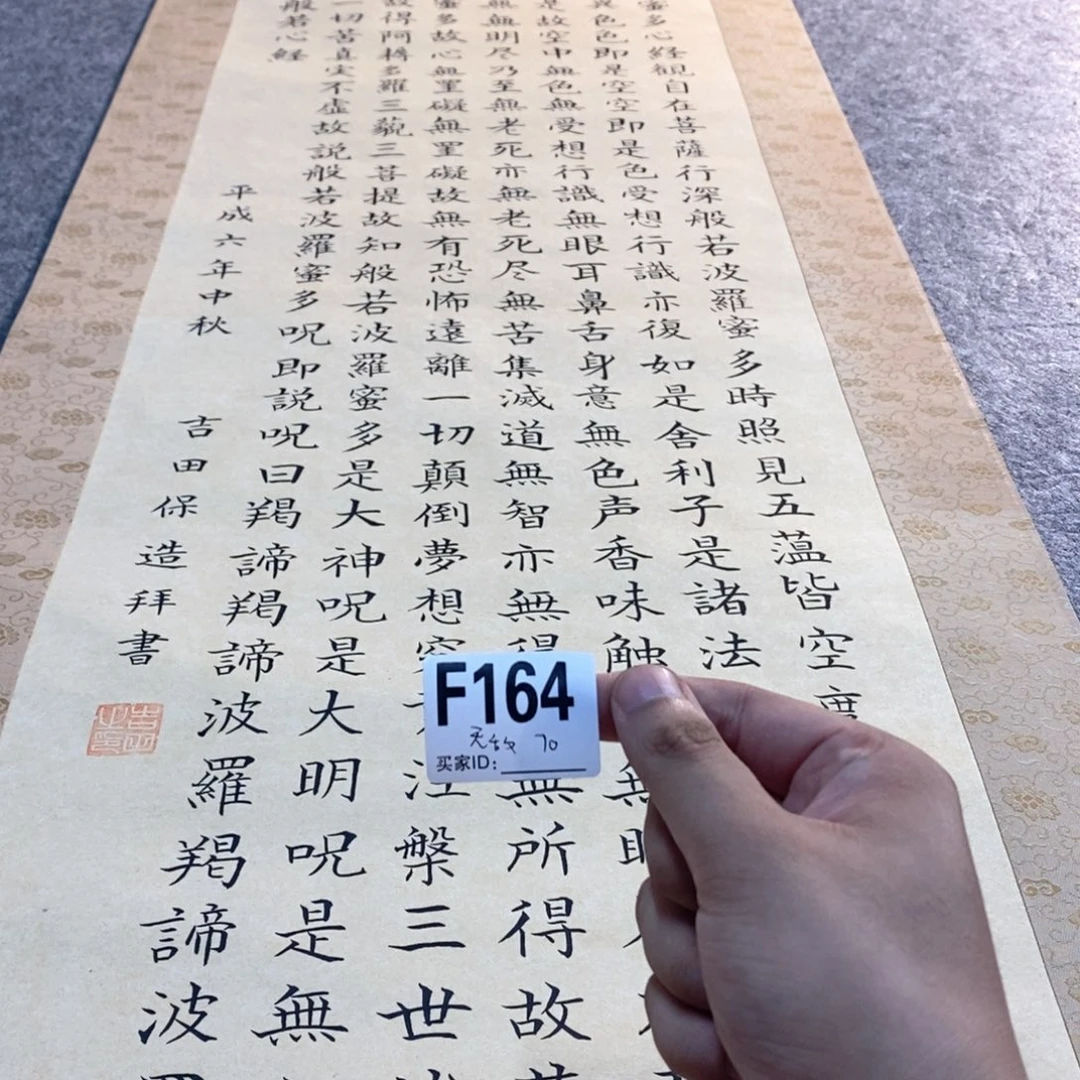 蜜多心経観自在菩薩行深般若波羅蜜多時照見五薀皆空度
異色色即是空空即是色受想行識亦復如是舍利子是諸法
是故空中無色無受想行識無眼耳鼻舌身意無色声香味触無眼
無無明尽乃至無老死亦無老死尽無苦集滅道無智亦無得無所得故菩
蜜多故心無罣礙無罣礙故無有恐怖遠離一切顛倒夢想究涅槃三世
故得阿耨多羅三藐三菩提故知般若波羅蜜多是大神呪是大明呪是無
一切苦真実不虚故説般若波羅蜜多呪即説呪曰羯諦羯諦波羅羯諦波羅
般若心経
平成六年中秋
吉田保造拝書
F164
无故 70
买家ID: